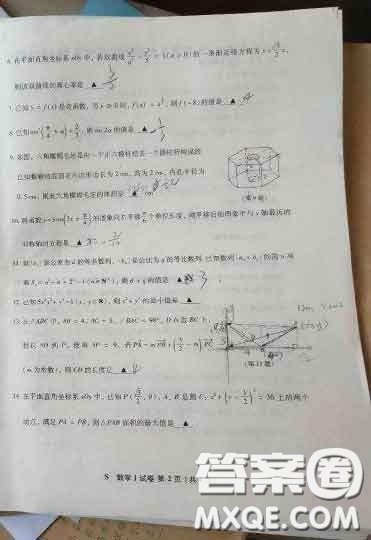 6. 在平面直角坐标系xOy中，若双曲线 x²/a² − y²/5 = 1(a＞0)的一条渐近线方程为 y=√5/2 x，
则该双曲线的离心率是 ▲ 3/2
7. 已知 y=f(x)是奇函数，当 x≥0时，f(x)= ，则 f(−8)的值是 ▲ -4
8. 已知 sin²(π/4+α)=2/3，则 sin2α的值是 ▲ 1/3
9. 如图，六角螺帽毛坯是由一个正六棱柱挖去一个圆柱所构成的．
已知螺帽的底面正六边形边长为2 cm，高为2 cm，内孔半径为
0.5 cm，则此六角螺帽毛坯的体积是
(第9题)
10. 将函数 y=3sin(2x+π/4)的图象向右平移π/6个单位长度，则平移后的图象中与 y轴最近的
对称轴的方程是 ▲
11. 设{aₙ}是公差为d的等差数列，{bₙ}是公比为q的等比数列．已知数列{aₙ+bₙ}的前n项
和Sₙ=n²−n+2ⁿ−1(n∈N*)，则d+q的值是 ▲
12. 已知5x²y²+y⁴=1(x，y∈R)，则x²+y²的最小值是 ▲
13. 在△ABC中，AB=4，AC=3，∠BAC=90°，D在边BC上，
延长AD到P，使得AP=9，若PA=mPB+(3/2−m)PC
(m为常数)，则CD的长度是 ▲
(第13题)
14. 在平面直角坐标系xOy中，已知P(√3/2，0)，A，B是圆C：x²+(y−1/2)²=36上的两个
动点，满足PA=PB，则△PAB面积的最大值是 ▲
S 数学Ⅰ试卷 第2页(共
答案圈
MXQE.COM